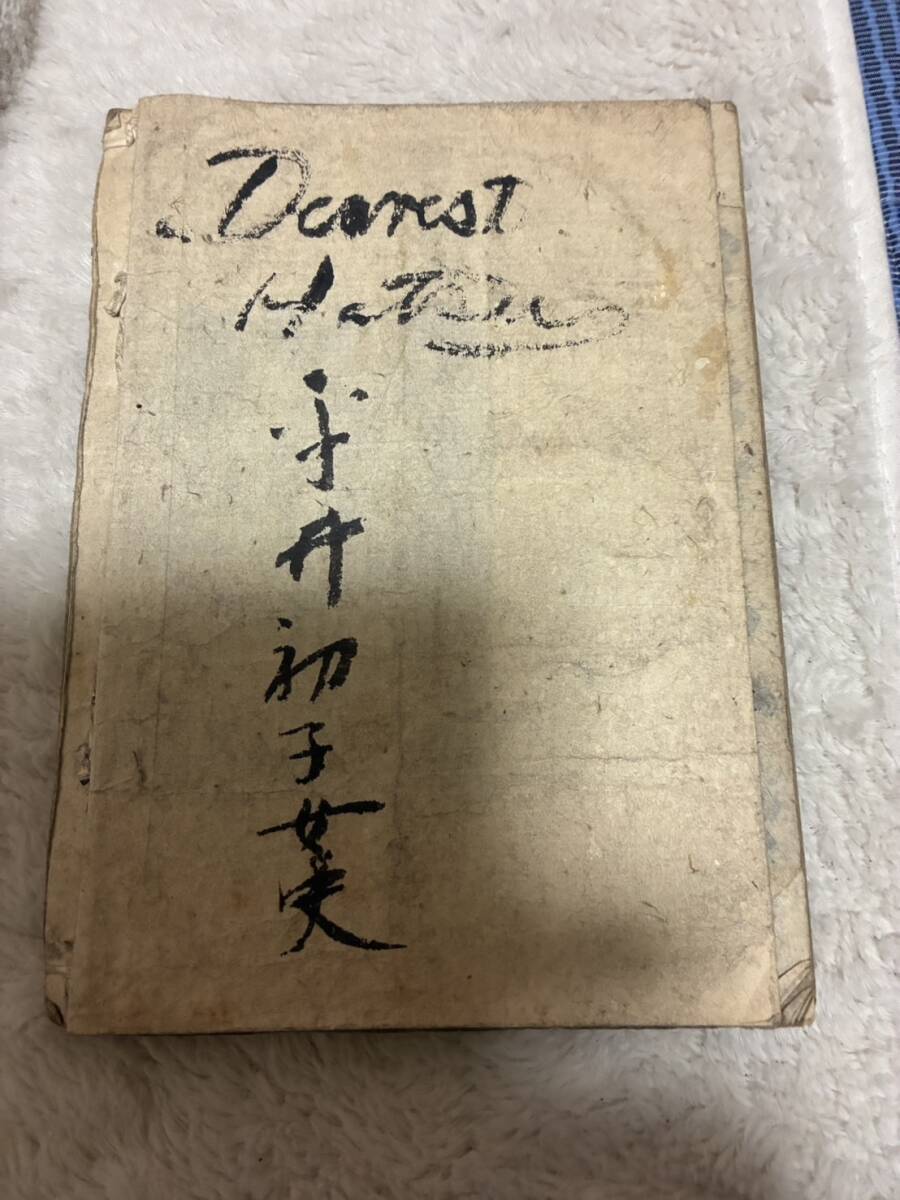 Dearest
Hatsu
平井初子女史